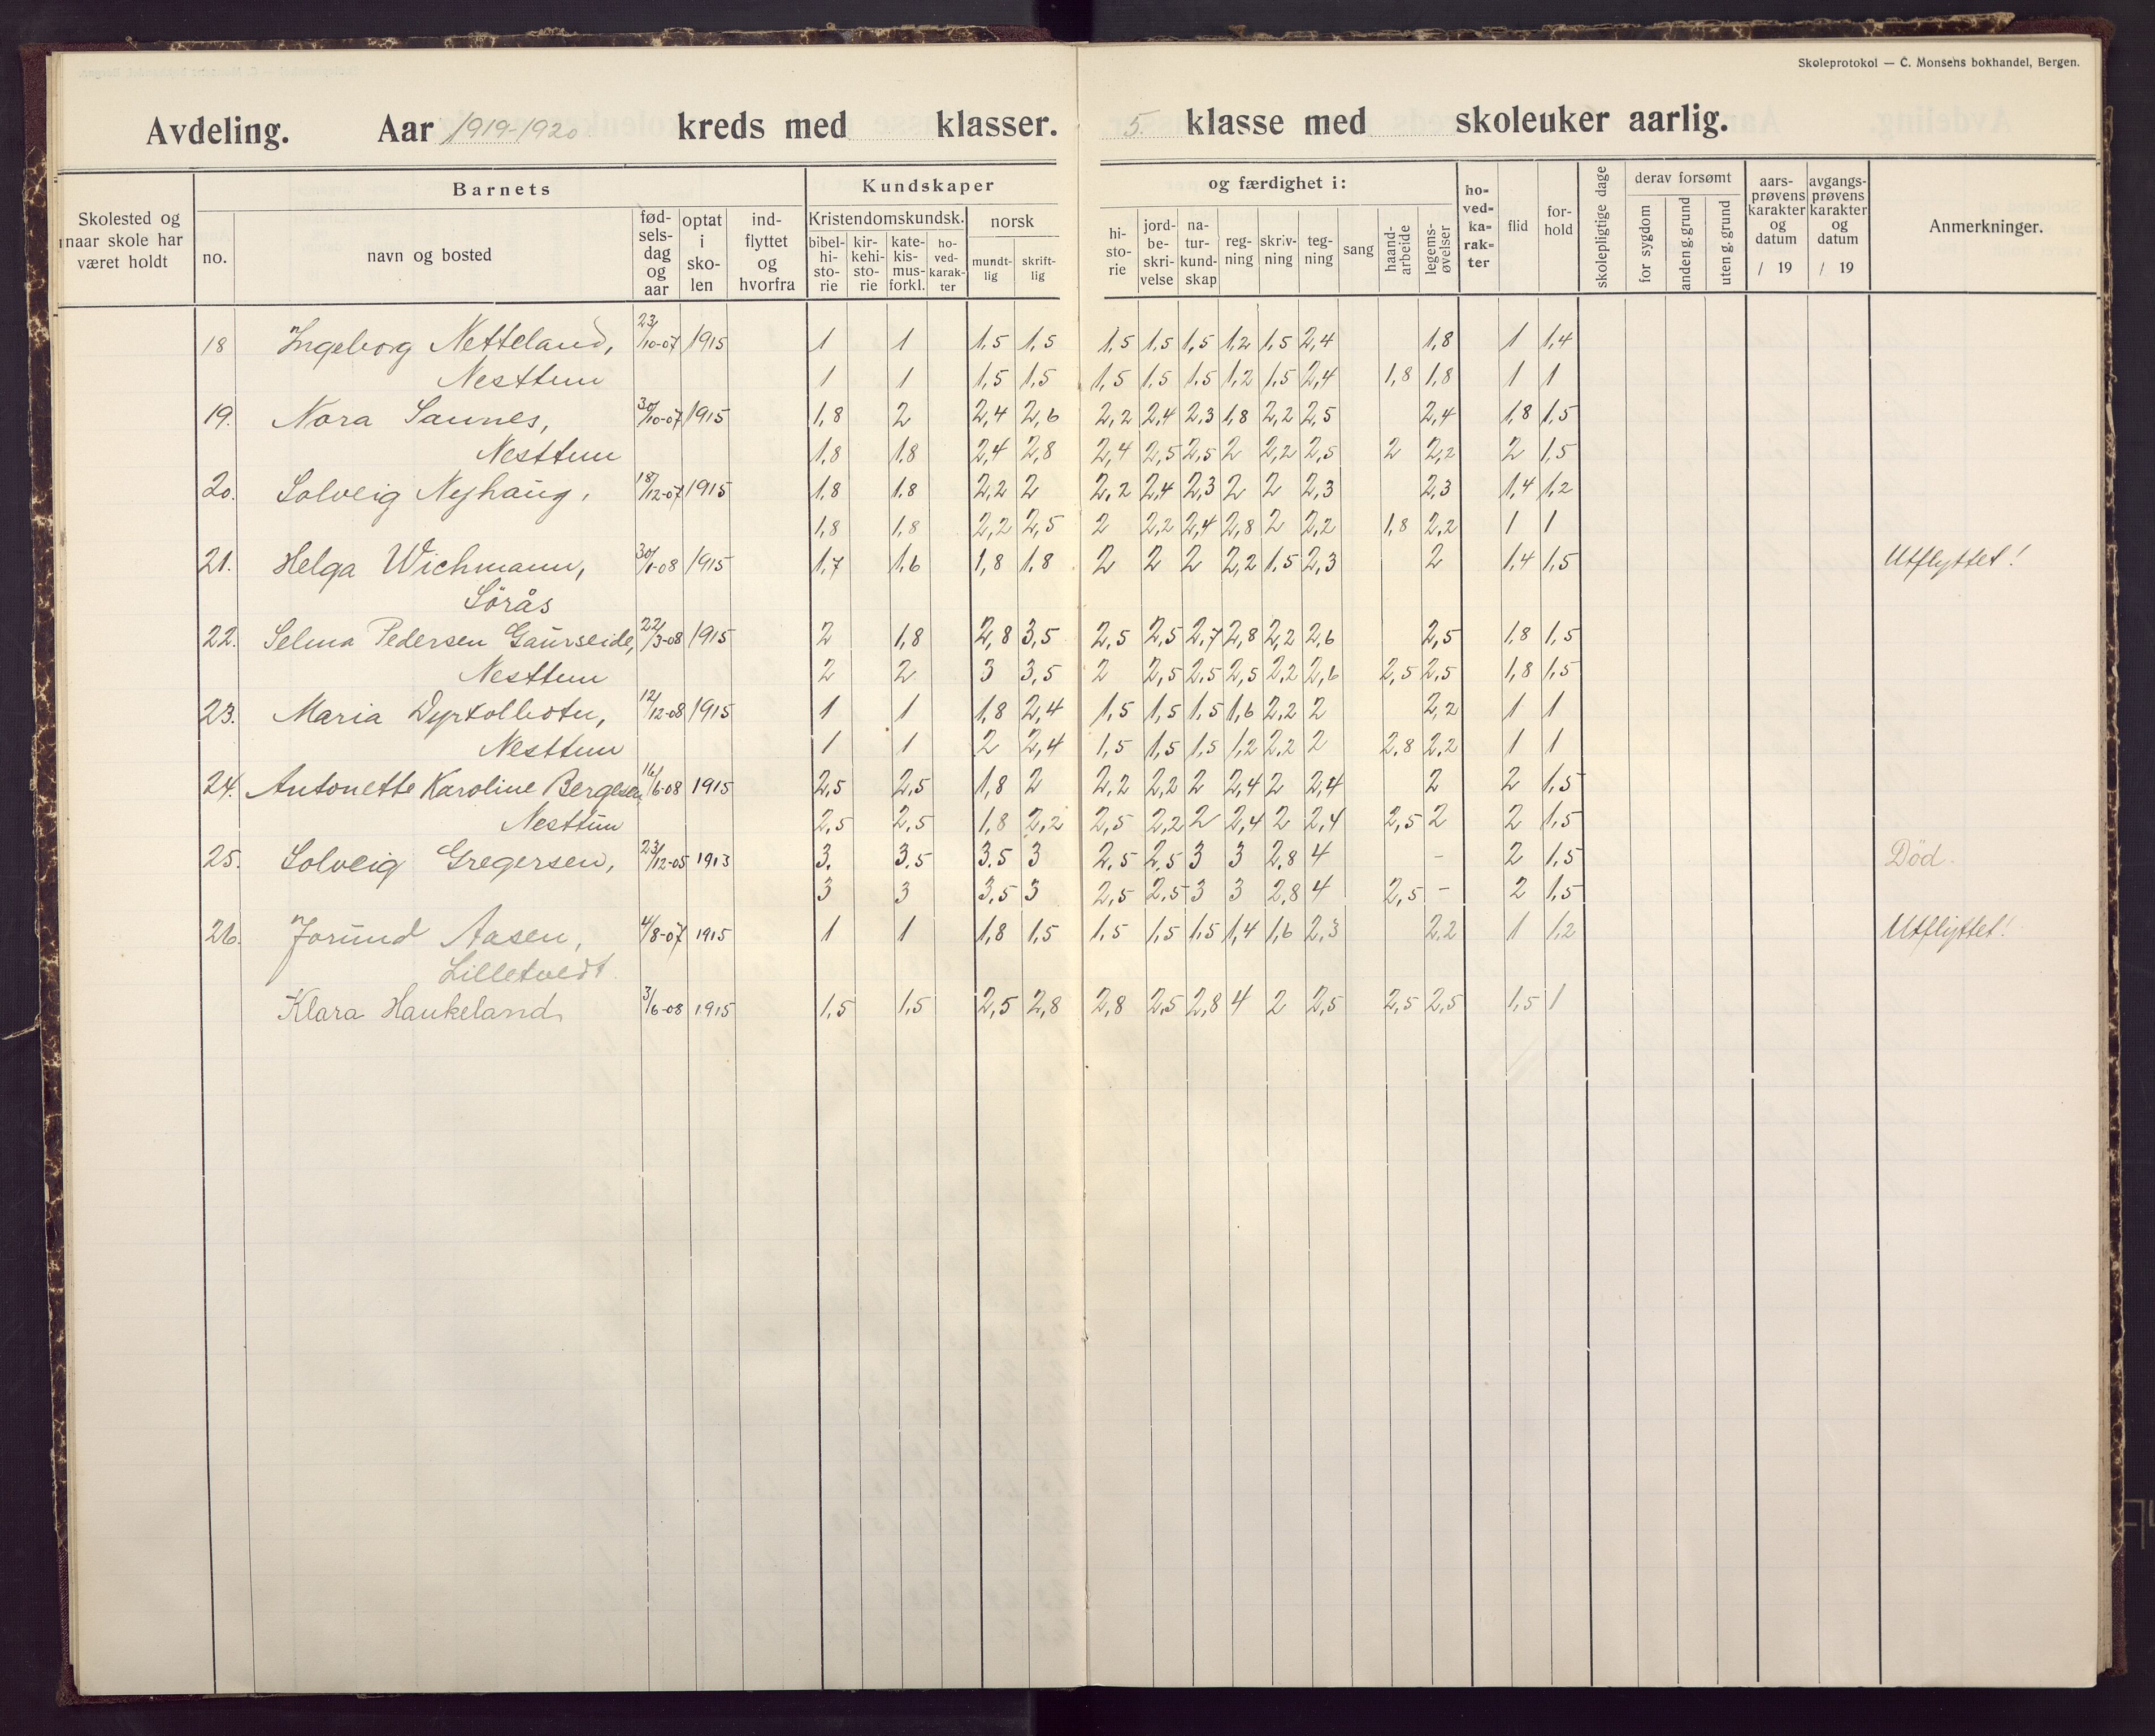 Skoleprotokol — C. Monsens bokhandel, Bergen.
Avdeling. Aar 1919-1920 kreds med klasser. 5. klasse med skoleuker aarlig.
Skolested og naar skole har været holdt
Barnets
no. navn og bosted fødselsdag og aar optat i skolen indflyttet og hvorfra
Kundskaper og færdighet i:
Kristendomskundsk. norsk
bibelhistorie kirkehistorie katekismusforkl. hovedkarakter mundtlig skriftlig
historie jordbeskrivelse naturkundskap regning skrivning tegning sang haandarbeide legemsøvelser hovedkarakter flid forhold
skolepligtige dage derav forsømt for sygdom anden g. grund uten g. grund
aarsprøvens karakter og datum / 19 avgangsprøvens karakter og datum / 19 Anmerkninger.
18 Ingeborg Netteland, 23/10-07 1915 1 1 1,5 1,5 1,5 1,5 1,5 1,2 1,5 2,4 1,8 1 1,4
Nesttun 1 1 1,5 1,5 1,5 1,5 1,5 1,2 1,5 2,4 1,8 1,8 1 1
19. Nora Saunes, 30/10-07 1915 1,8 2 2,4 2,6 2,2 2,4 2,3 1,8 2,2 2,5 2,4 1,8 1,5
Nesttun 1,8 1,8 2,4 2,8 2,4 2,5 2,5 2 2,2 2,5 2 2,2 2 1,5
20. Solveig Nyhaug, 18/12-07 1915 1,8 1,8 2,2 2 2,2 2,4 2,3 2 2 2,3 2,3 1,4 1,2
1,8 1,8 2,2 2,5 2 2,2 2,4 2,8 2 2,2 1,8 2,2 1 1
21. Helga Wichmann, 30/1-08 1915 1,7 1,6 1,8 1,8 2 2 2 2,2 1,5 2,3 2 1,4 1,5 Utflyttet!
Sörås
22. Selma Pedersen Gaurseide, 22/3-08 1915 2 1,8 2,8 3,5 2,5 2,5 2,7 2,8 2,2 2,6 2,5 1,8 1,5
Nesttun 2 2 3 3,5 2 2,5 2,5 2,5 2,2 2,6 2,5 2,5 1,8 1,5
23. Maria Dyrkolbotn, 12/12-08 1915 1 1 1,8 2,4 1,5 1,5 1,5 1,6 2,2 2 2,2 1 1
Nesttun 1 1 2 2,4 1,5 1,5 1,5 1,2 2,2 2 2,8 2,2 1 1
24. Antonette Karoline Bergesen 16/6-08 1915 2,5 2,5 1,8 2 2,2 2,2 2 2,4 2 2,4 2 2 1,5
Nesttun 2,5 2,5 1,8 2,2 2,5 2,2 2 2,4 2 2,4 2,5 2 2 1,5
25. Solveig Gregersen, 23/12-05 1913 3. 3.5 3.5 3 2,5 2,5 3 3 2,8 4 - 2 1,5 Död.
3 3 3,5 3 2,5 2,5 3 3 2,8 4 2,5 - 2 1,5
26. Jorund Aasen, 4/8-07 1915 1 1 1,8 1,5 1,5 1,5 1,5 1,4 1,6 2,3 2,2 1 1,2 Utflyttet!
Lilletvedt.
Klara Haukeland, 3/6-08 1915 1,5 1,5 2,5 2,8 2,8 2,5 2,8 4 2 2,5 2,5 2,5 1,5 1